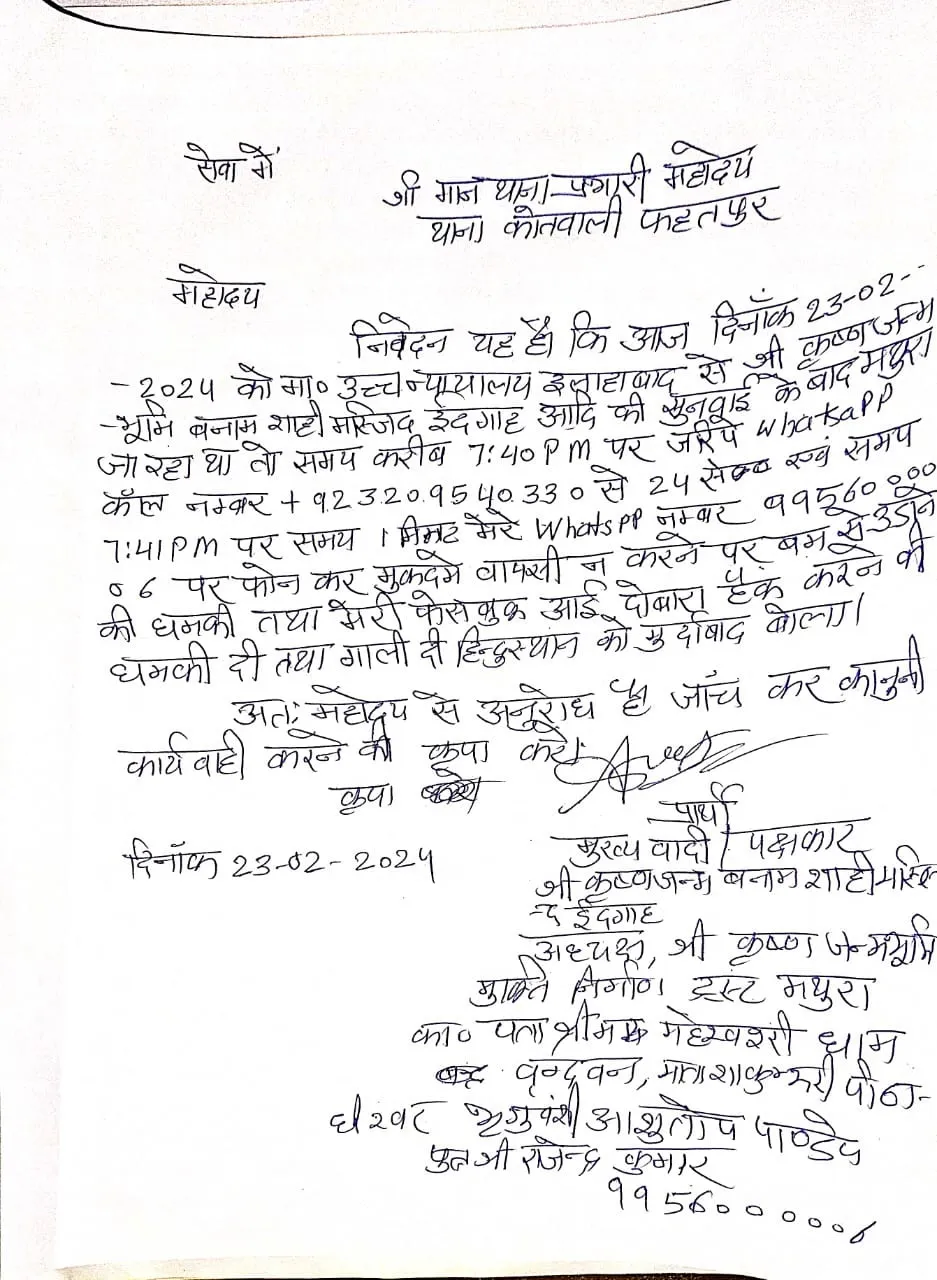 सेवा में
श्री मान थाना प्रभारी महोदय
थाना कोतवाली फहतपुर
महोदय
निवेदन यह है। कि आज दिनाँक 23-02-
-2024 को मा० उच्च न्यायालय इलाहाबाद से श्री कृष्ण जन्म
-भूमि बनाम शाही मस्जिद ईदगाह आदि की सुनवाई के बाद मथुरा
जा रहा था तो समय करीब 7:40 PM पर जरिये WhatsaPP
कॉल नम्बर +92320.9540330 से 24 से० एवं समय
7:41 PM पर समय 1 मिनट मेरे WhatsPP नम्बर 99560000
06 पर फोन कर मुकदमे वापसी न करने पर बम से उडाने
की धमकी तथा मेरी फेसबुक आई दोबारा हैक करने की
धमकी दी तथा गाली दी हिन्दुस्थान को मुर्दाबाद बोला।
अतः महोदय से अनुरोध है जाँच कर कानुनी
कार्यवाही करने की कृपा करे।
कृपा
प्रार्थी
दिनाँक 23-02-2024
मुख्य वादी / पक्षकार
श्री कृष्ण जन्म बनाम शाही मस्जि
-द ईदगाह
अध्यक्ष, श्री कृष्ण जन्मभूमि
मुक्ति निर्माण ट्रस्ट मथुरा
का० पता श्री महेश्वरी धाम
वृन्दावन, माता शाकुम्भरी पीठा-
धीश्वर भृगुवंशी आशुतोष पाण्डेय
पुत्र श्री राजेन्द्र कुमार
9956000006